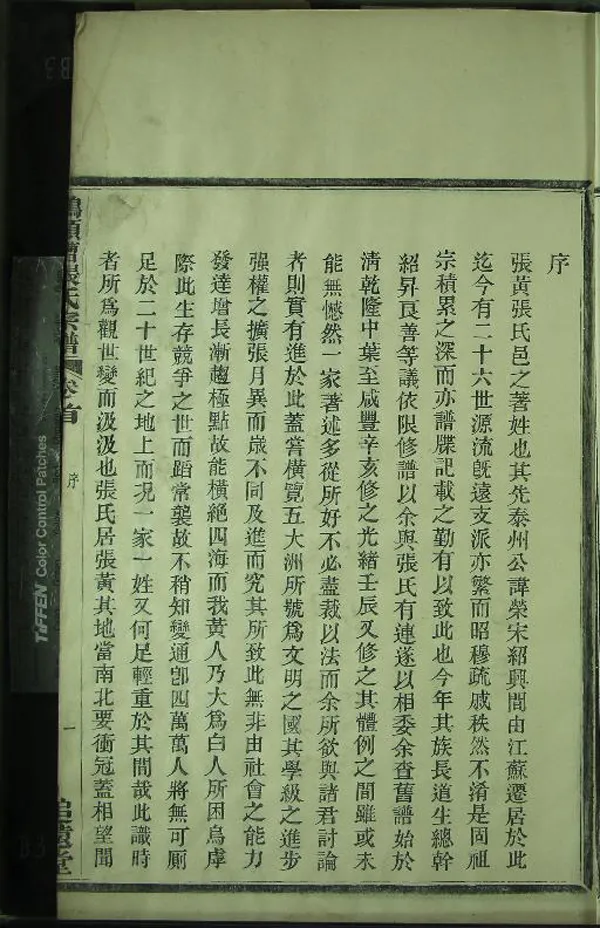 序
張黃張氏邑之著姓也其先泰州公諱榮宋紹興間由江蘇遷居於此
迄今有二十六世源流旣遠支派亦繁而昭穆疏戚秩然不淆是固祖
宗積累之深而亦譜牒記載之勤有以致此也今年其族長道生總幹
紹昇良善等議依限修譜以余與張氏有連遂以相委余查舊譜始於
清乾隆中葉至咸豐辛亥修之光緒壬辰又修之其體例之間雖或未
能無憾然一家著述多從所好不必盡裁以法而余所欲與諸君討論
者則實有進於此蓋嘗橫覽五大洲所號爲文明之國其學級之進步
强權之擴張月異而歲不同及進而究其所致此無非由社會之能力
發達增長漸趨極點故能橫絕四海而我黃人乃大爲白人所困烏虖
際此生存競爭之世而蹈常襲故不稍知變通卽四萬萬人將無可廁
足於二十世紀之地上而況一家一姓又何足輕重於其間哉此識時
者所爲觀世變而汲汲也張氏居張黃其地當南北要衝冠蓋相望聞
張氏宗譜
卷首
序
一
追遠堂
TIFFEN Color Control Patches
B3